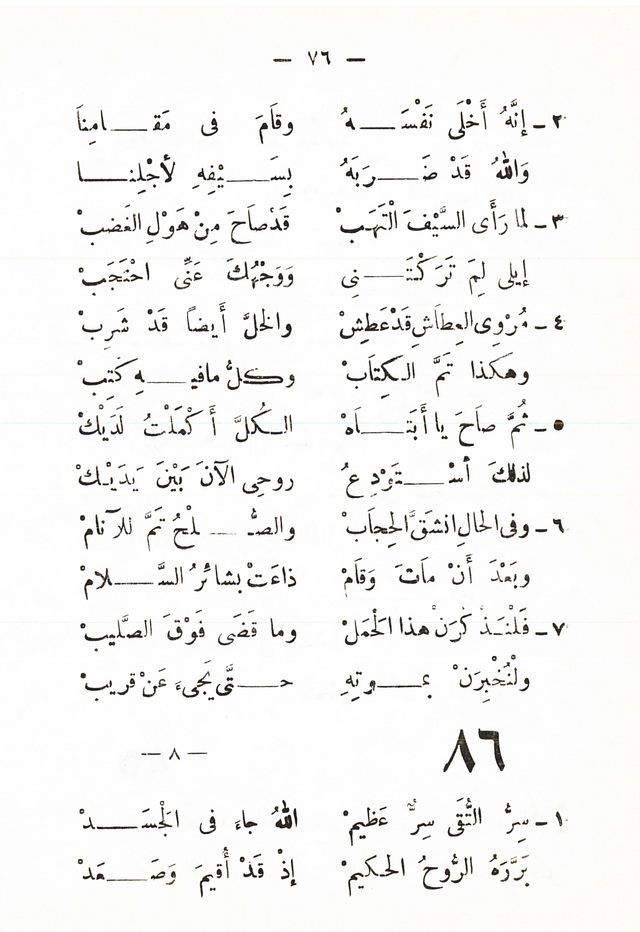 — ٧٦ —
٢ـ إِنَّهُ أَخْلَى نَفْسَـــهُ وقَامَ فى مَقـــامِنِاَ
وَاللهُ قَدْ ضَـــرَبَهُ بِسَـــيْفِهِ لأَجْلِنـــا
٣ـ لما رَأَى السَّيْفَ الْتَهَبْ قَدْ صَاحَ مِنْ هَوْلِ الغَضبْ
إيلى لِمَ تَرَكْتَـــنِى وَوَجْهُكَ عَنِّى احْتَجَبْ
٤ـ مُرْوِى العِطاَشِ قَدْ عَطِشْ والخلَّ أَيضاً قَدْ شَرِبْ
وهكذا تَمَّ الـكِتاَبْ وكلُّ مافيـــهِ كُتِبْ
٥ـ ثُمَّ صاَحَ يا أَبَتَـــاَهْ الـكُلَّ أَكْمَلْتُ لَدَيْكْ
لذلكَ أسْـــتَوْدِعُ روحِى الآنَ بَيْنَ يَدَيْـكْ
٦ـ وفى الحالِ انشَقَّ الحِجاَبْ والصُّـــلْحُ تَمَّ للآنامْ
وبَعْدَ أَنْ ماَتَ وَقَامْ ذاعَتْ بشائرُ السَّـــلامْ
٧ـ فَلْنَـذْكُرَنْ هذا الْحَمَلْ وما قَضَى فَوْقَ الصَّليبْ
ولْنُخْبِرَنْ بمـــوتِهِ حـــتَّى يَجِىءَ عَنْ قريبْ
٨٦
— ٨ —
١ـ سِرُّ التُّقَى سِرٌّ عَظيمْ اللهُ جاءَ فى الْجَسَـــدْ
بَرَّرَهُ الرُّوحُ الحكيمْ إذْ قَدْ أُقيمَ وَصَـــعَدْ